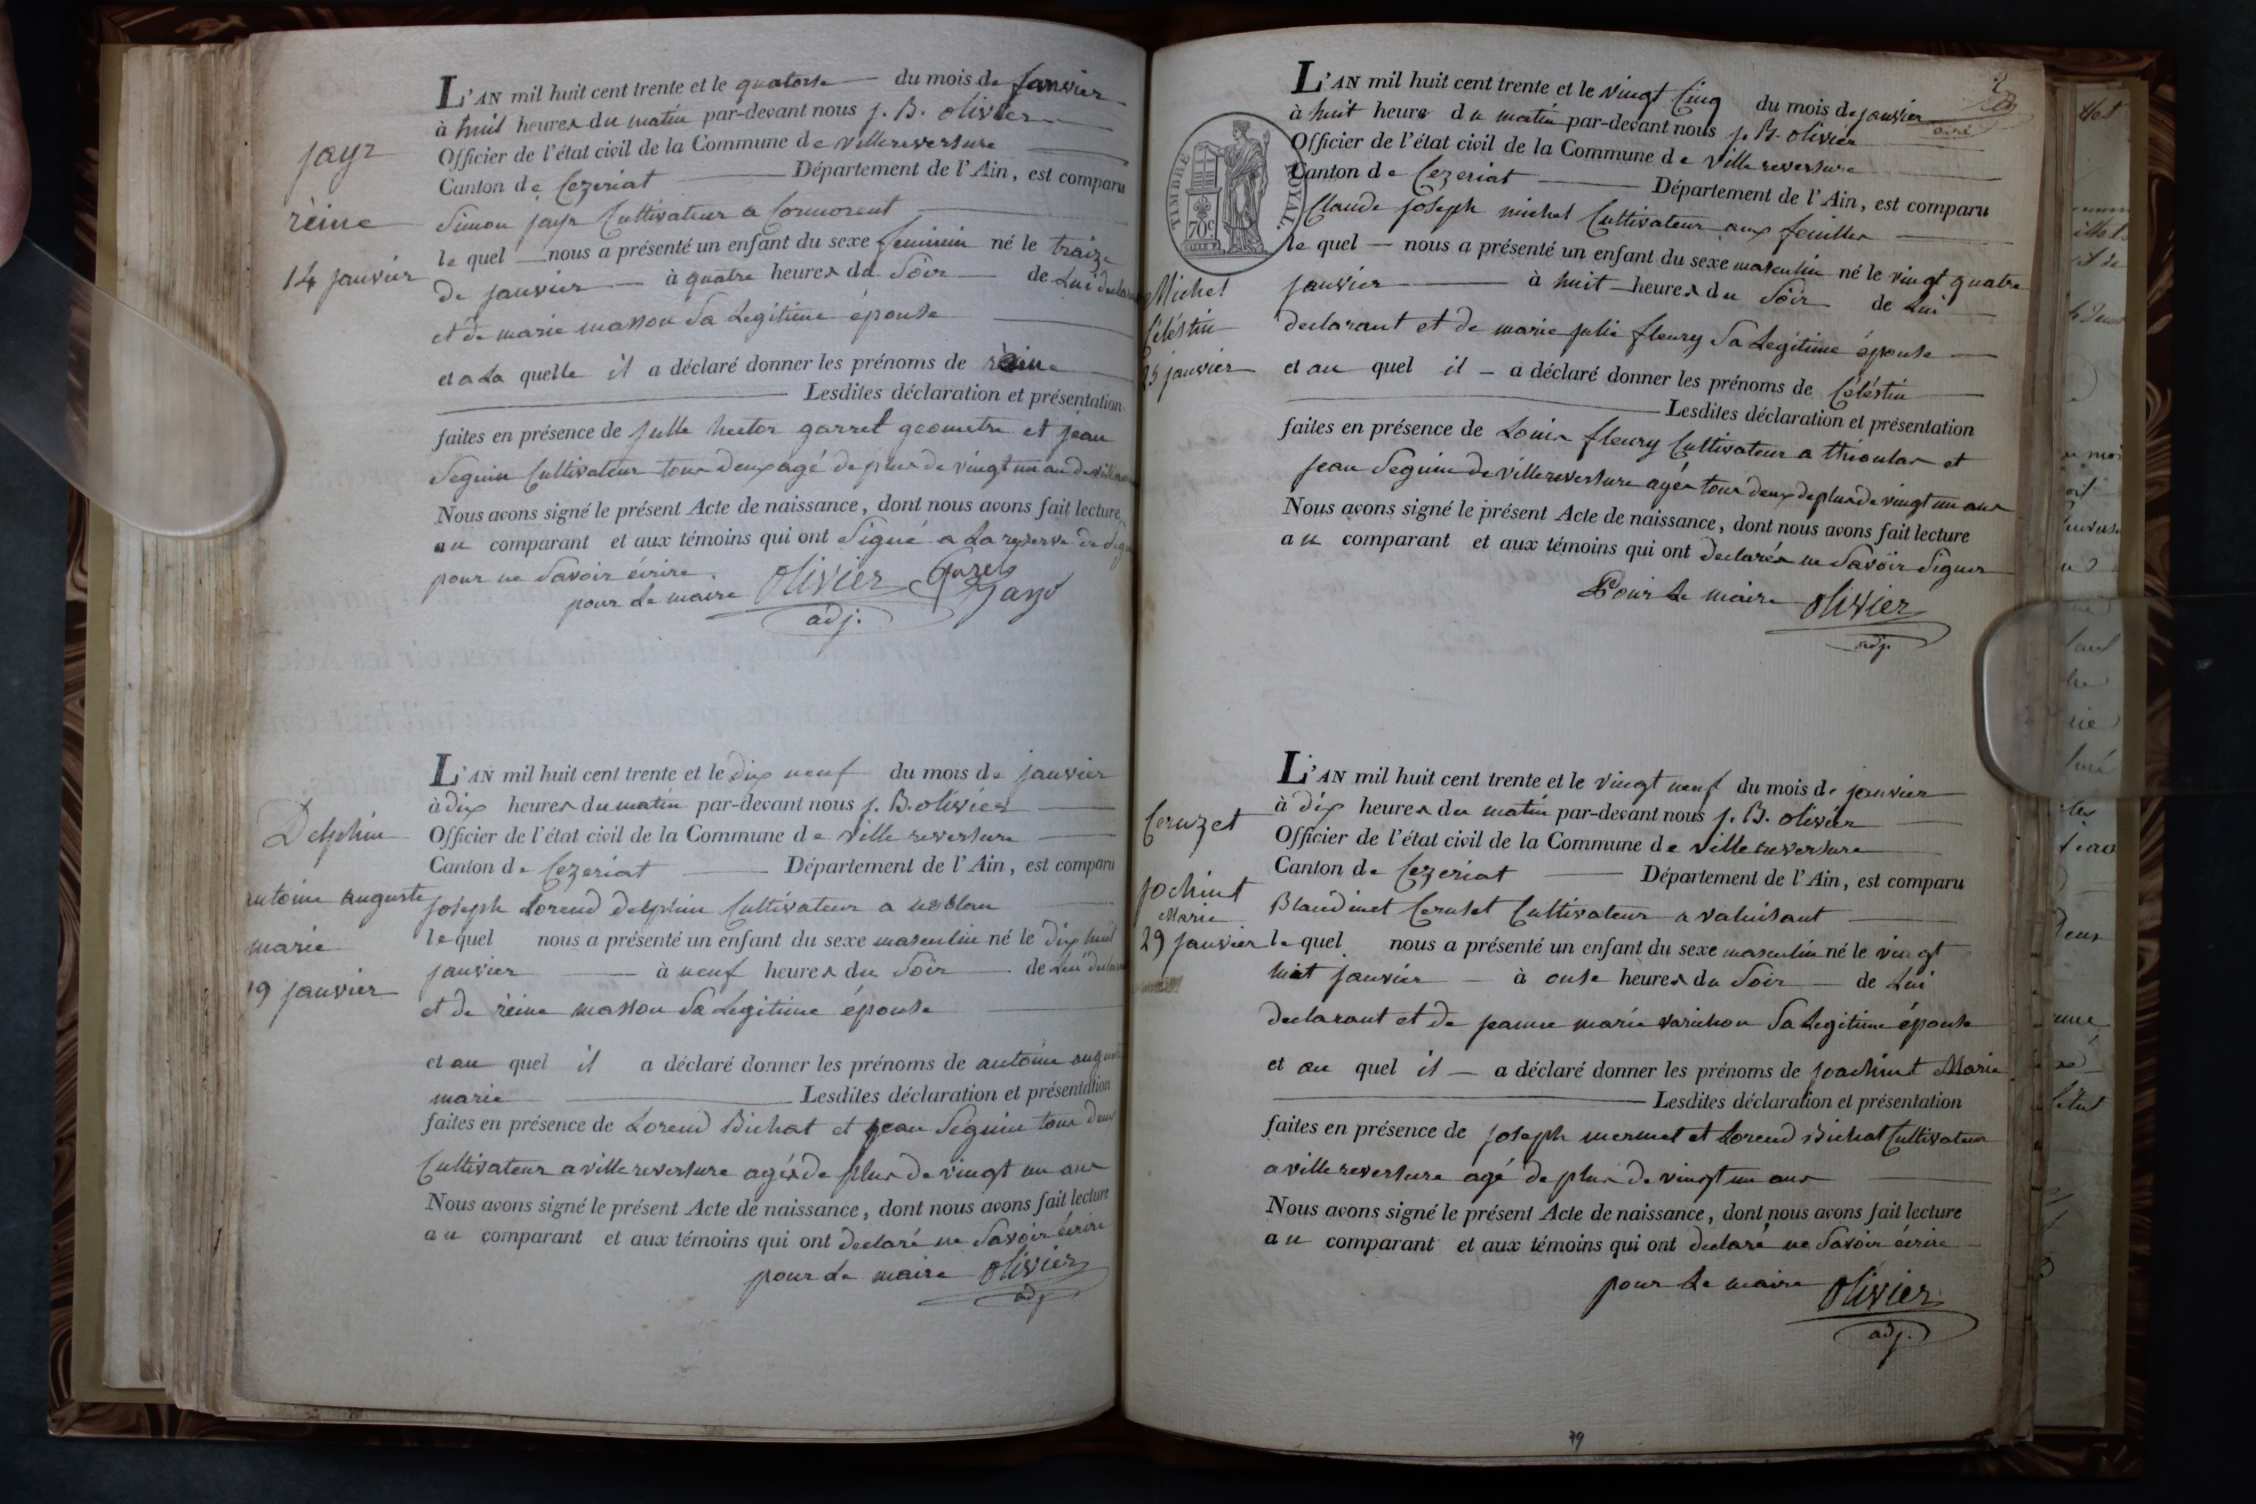 jayr
reine
14 janvier
L'AN mil huit cent trente et le quatorse du mois de janvier
à huit heures du matin par-devant nous j. B. olivier
Officier de l'état civil de la Commune de villereversure
Canton de Cezeriat Département de l'Ain, est comparu
Simon jayr Cultivateur a Cormorent
le quel nous a présenté un enfant du sexe feminin né le traize
de janvier à quatre heures du Soir de Lui
et de marie masson Sa Legitime épouse
et a La quelle il a déclaré donner les prénoms de reine
Lesdites déclaration et présentation
faites en présence de julle hector garret geometre et jean
Seguin Cultivateur tous deux agé de plus de vingt un an de
Nous avons signé le présent Acte de naissance, dont nous avons fait lecture
au comparant et aux témoins qui ont Signé a La reserve de
pour ne Savoir écrire.
pour Le maire olivier
adj.
Delphin
antoine auguste
marie
19 janvier
L'AN mil huit cent trente et le dix neuf du mois de janvier
à dix heures du matin par-devant nous j. B. olivier
Officier de l'état civil de la Commune de ville reversure
Canton de Cezeriat Département de l'Ain, est comparu
joseph Lorend delphin Cultivateur a
le quel nous a présenté un enfant du sexe masculin né le dix huit
janvier à neuf heures du Soir de Lui
et de reine masson Sa Legitime épouse
et au quel il a déclaré donner les prénoms de antoine
marie Lesdites déclaration et présentation
faites en présence de Lorend Bichat et jean Seguin tous deux
Cultivateur a ville reversure agés de plus de vingt un ans
Nous avons signé le présent Acte de naissance, dont nous avons fait lecture
au comparant et aux témoins qui ont declaré ne Savoir écrire
pour Le maire olivier
adj
TIMBRE ROYAL.
70c
Michel
Céléstin
25 janvier
L'AN mil huit cent trente et le vingt Cinq du mois de janvier
à huit heure du matin par-devant nous j. B. olivier
Officier de l'état civil de la Commune de ville reversure
Canton de Cezeriat Département de l'Ain, est comparu
Claude joseph michel Cultivateur aux feuilles
le quel nous a présenté un enfant du sexe masculin né le vingt quatre
janvier à huit heures du Soir de Lui
declarant et de marie julie fleury Sa Legitime épouse
et au quel il a déclaré donner les prénoms de Céléstin
Lesdites déclaration et présentation
faites en présence de Louis fleury Cultivateur a thioulas et
jean Seguin de villereversure agés tous deux de plus de vingt un ans
Nous avons signé le présent Acte de naissance, dont nous avons fait lecture
au comparant et aux témoins qui ont declarés ne Savoir Signer
Pour Le maire olivier
adj.
Ceruzet
jochint
Marie
29 janvier
L'AN mil huit cent trente et le vingt neuf du mois de janvier
à dix heures du matin par-devant nous j. B. olivier
Officier de l'état civil de la Commune de ville reversure
Canton de Cezeriat Département de l'Ain, est comparu
Blandinet Ceruset Cultivateur a valuisant
le quel nous a présenté un enfant du sexe masculin né le vingt
huit janvier à onse heures du Soir de Lui
declarant et de jeanne marie varichon Sa Legitime épouse
et au quel il a déclaré donner les prénoms de joachint Marie
Lesdites déclaration et présentation
faites en présence de joseph mermet et Lorend Bichat Cultivateur
a ville reversure agé de plus de vingt un ans
Nous avons signé le présent Acte de naissance, dont nous avons fait lecture
au comparant et aux témoins qui ont declaré ne Savoir écrire
pour Le maire olivier
adj.
79